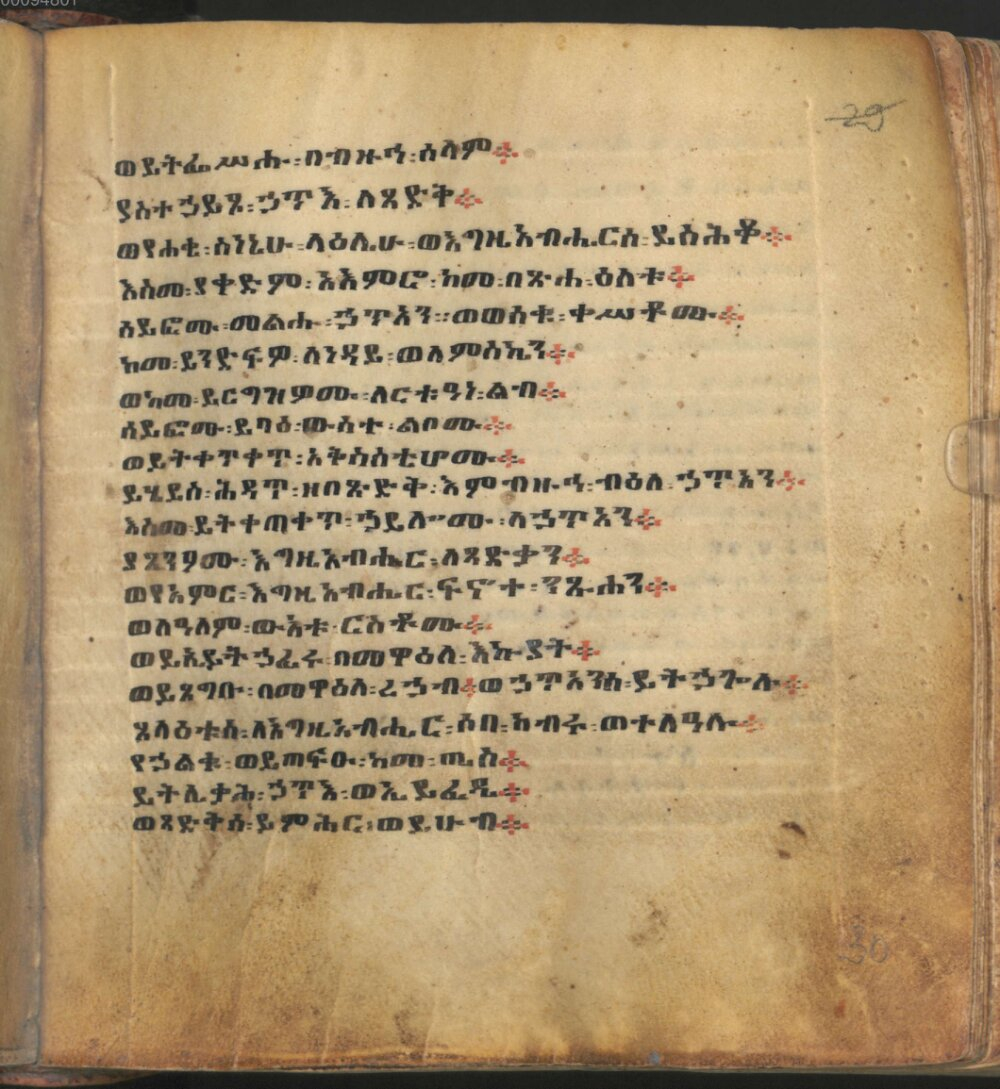 00094801
29
ወይትፌሥሑ፡በብዙኅ፡ሰላም።
ያስተኃይጾ፡ኃጥእ፡ለጻድቅ።
ወየሐቂ፡ስነኒሁ፡ላዕሌሁ፡ወእግዚአብሔርሰ፡ይስሕቆ።
እስመ፡ያቀድም፡አእምሮ፡ከመ፡በጽሐ፡ዕለቱ።
ሰይፎሙ፡መልሑ፡ኃጥአን።ወወሰቁ፡ቀሥቶሙ።
ከመ፡ይንድፍዎ፡ለነዳይ፡ወለምስኪን።
ወከመ፡ይርግዝዎሙ፡ለርቱዓነ፡ልብ።
ሰይፎሙ፡ይባዕ፡ውስተ፡ልቦሙ።
ወይትቀጥቀጥ፡አቅስስቲሆሙ።
ይሄይስ፡ሕዳጥ፡ዘበጽድቅ፡እምብዙኅ፡ብዕለ፡ኃጥአን።
እስመ፡ይትቀጠቀጥ፡ኃይሎሙ፡ለኃጥአን።
ያጸንዖሙ፡እግዚአብሔር፡ለጻድቃን።
ወየአምር፡እግዚአብሔር፡ፍኖተ፡ንጹሐን።
ወለዓለም፡ውእቱ፡ርስቶሙ።
ወይእይትኃፈሩ፡በመዋዕለ፡እኩያት።
ወይጸግቡ፡በመዋዕለ፡ረኃብ።ወኃጥአንሰ፡ይትኃጐሉ።
ጸላዕቱሰ፡ለእግዚአብሔር፡ሶበ፡ከብሩ፡ወተለዓሉ።
የኃልቁ፡ወይጠፍዑ፡ከመ፡ጢስ።
ይትሌቃሕ፡ኃጥእ፡ወኢይፈዲ።
ወጻድቅሰ፡ይምሕር፡ወይሁብ።
30